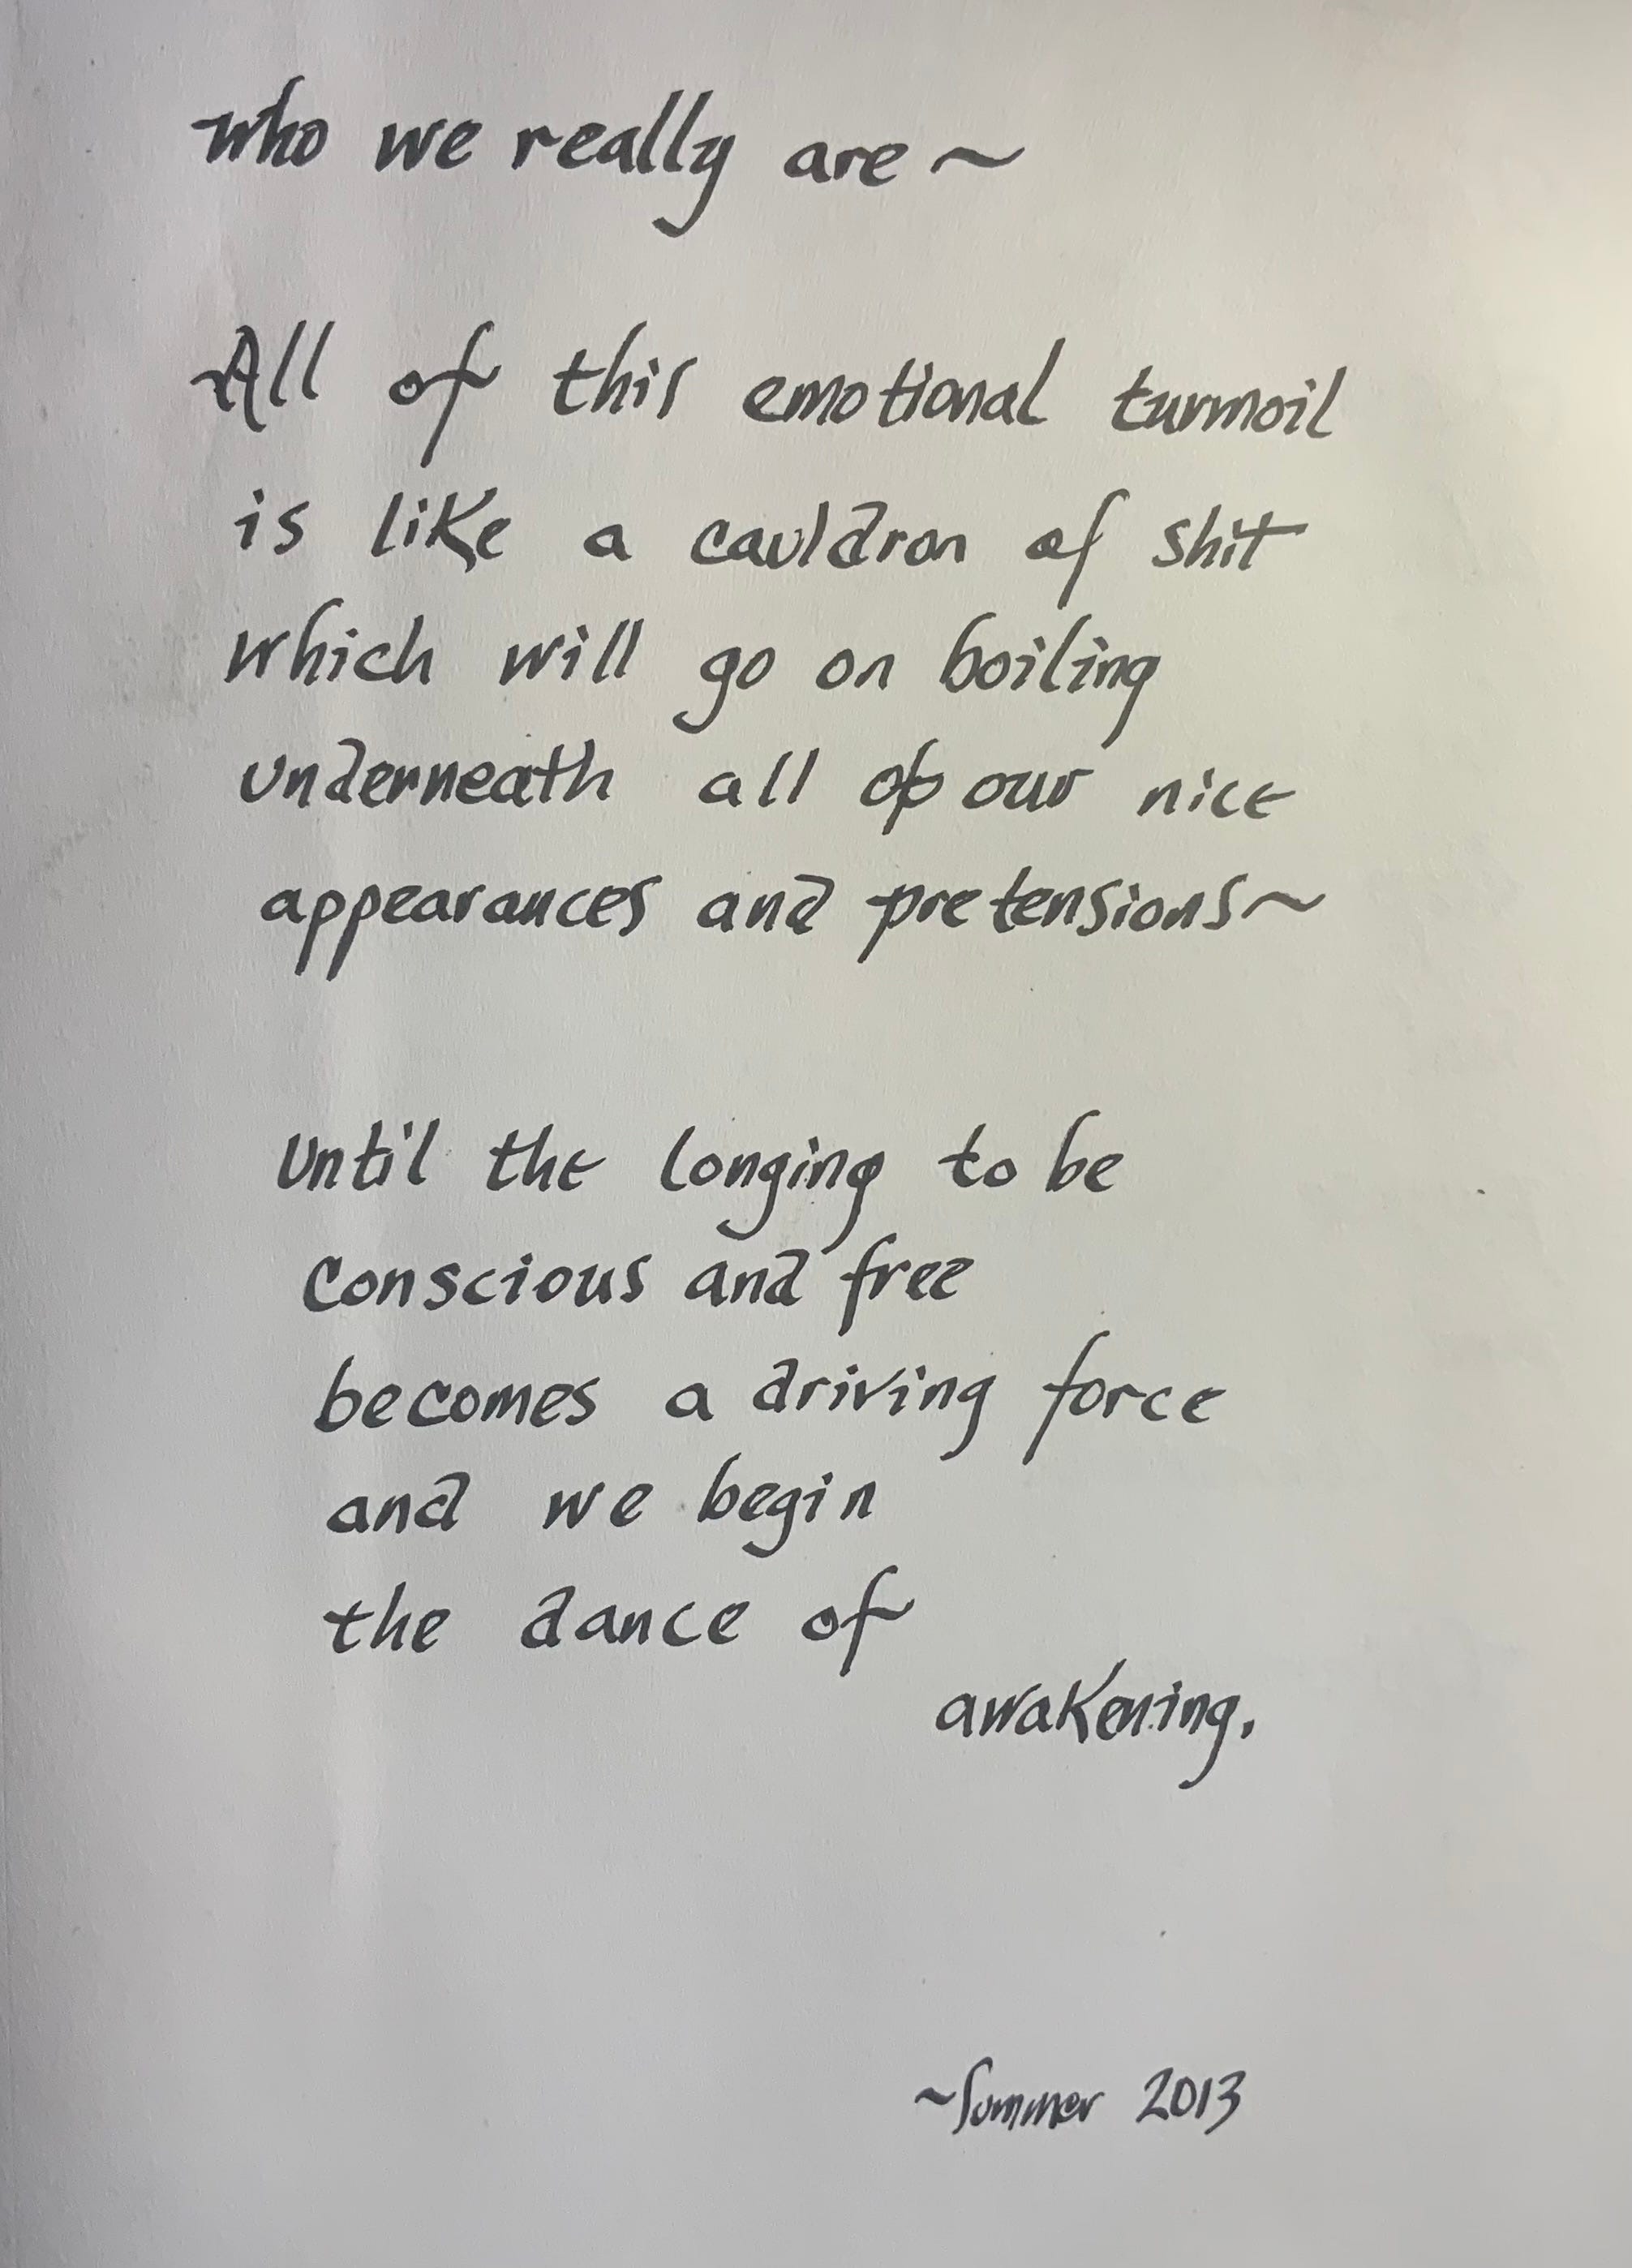 who we really are ~
All of this emotional turmoil
is like a cauldron of shit
which will go on boiling
underneath all of our nice
appearances and pretensions ~
Until the longing to be
conscious and free
becomes a driving force
and we begin
the dance of
awakening.
~ Summer 2013